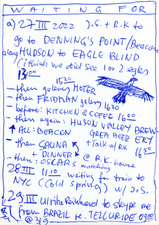 WAITING FOR
a) 27 III 2022 J.S. + R.K to
go to DENNING'S POINT/BEACON
along HUDSON to EAGLE BLIND
(I think we did see 1 or 2 eagles)
1300
— then gallery MOTER
— then FRIDMAN gallery 1630
— before: KITCHEN & COFFE 1600
— then again: HUSON VALLEY BREW-
↑ ALL: BEACON GREAT BEER ERY
— then SAUNA + Talk of RK
+ DINNER @ R.K. house
— then: OSCARS watching
28 III 1110 waiting for train to
NYC (Cold Spring) w/ J.S.
29 III Rainhard to skype me
from BRAZIL TELLURIDE